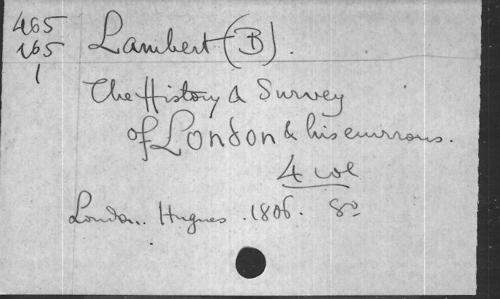 465
165
1
Lambert (B).
The History & Survey
of London & his environs.
4 vol
London. Hugues. 1806. 8º